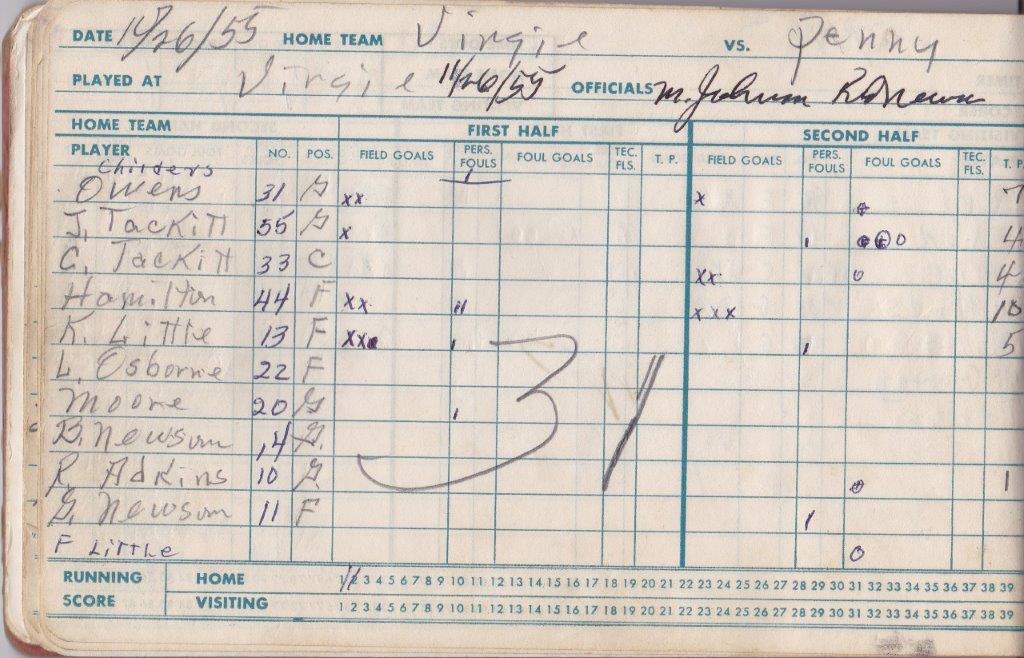 DATE 11/26/55 HOME TEAM Virgie VS. Penny
PLAYED AT Virgie 11/26/55 OFFICIALS M. Johnson
HOME TEAM FIRST HALF SECOND HALF
PLAYER NO. POS. FIELD GOALS PERS. FOULS FOUL GOALS TEC. FLS. T. P. FIELD GOALS PERS. FOULS FOUL GOALS TEC. FLS. T. P.
Childers
Owens 31 G xx x 7
J. Tackitt 55 G x 4
C. Tackitt 33 C xx 0 4
Hamilton 44 F xx 11 xxx 10
K. Little 13 F xxx 1 1 5
L. Osborne 22 F
Moore 20 G 1
B. Newsom 14 G.
R. Adkins 10 G 1
G. Newsom 11 F 1
F Little 0
31
RUNNING SCORE
HOME 1 2 3 4 5 6 7 8 9 10 11 12 13 14 15 16 17 18 19 20 21 22 23 24 25 26 27 28 29 30 31 32 33 34 35 36 37 38 39
VISITING 1 2 3 4 5 6 7 8 9 10 11 12 13 14 15 16 17 18 19 20 21 22 23 24 25 26 27 28 29 30 31 32 33 34 35 36 37 38 39